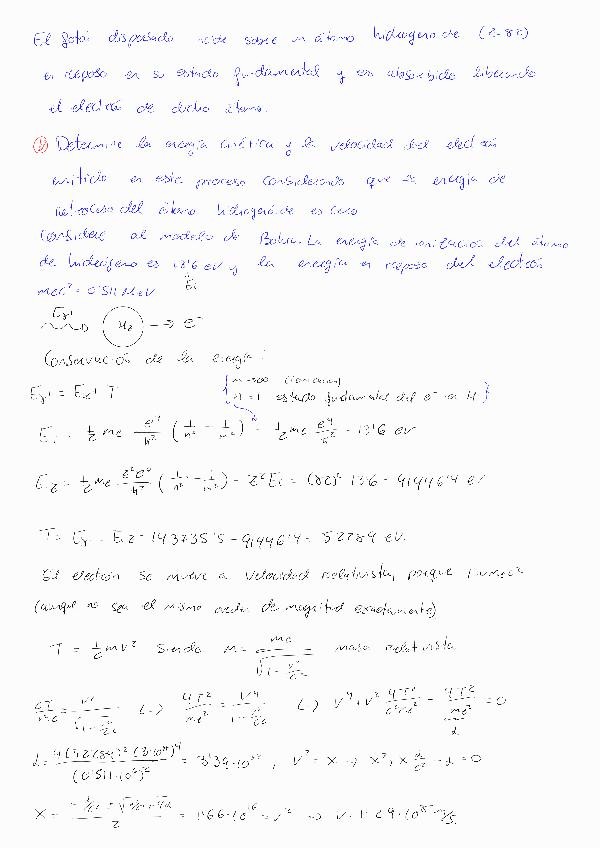 El fotón dispersado incide sobre un átomo hidrogenoide (Z=82)
en reposo en su estado fundamental y es absorbido liberando
el electrón de dicho átomo.
Determine la energía cinética y la velocidad del electrón
emitido en este proceso considerando que la energía de
retroceso del átomo hidrogenoide es cero
Considere al modelo de Bohr. La energía de ionización del átomo
de hidrógeno es 13'6 eV y la energía en reposo del electrón
mec² = 0'511 MeV
Ei
Eγ' → e⁻
Conservación de la energía:
n→∞ (ionización)
n=1 estado fundamental del e⁻ en H
Eγ' = Ez + T
Ei = 1/2 me e⁴/ħ² (1/n² - 1/m²) = 1/2 me e⁴/ħ² = 13'6 eV
Ez = 1/2 me z²e⁴/ħ² (1/n² - 1/m²) = Z²Ei = (82)² 13'6 = 91446'4 eV
T = Eγ' - Ez = 143735'5 - 91446'4 = 52289 eV
El electrón se mueve a velocidad relativista, porque
(aunque no sea el mismo orden de magnitud exactamente)
T = 1/2 mv² siendo m = me/√(1 - v²/c²) masa relativista
2T/me = v²/√(1 - v²/c²) (→) 4T²/me² = v⁴/(1 - v²/c²) (→) v⁴ + v² 4T²/c²me² - 4T²/me² = 0
α
, v² = x → x² + x α/c² - α = 0
= 1'66·10¹⁶ = v² ⇒ v = 1'29·10⁸ m/s